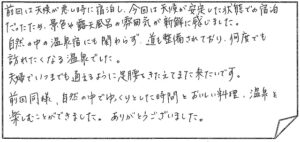 前回は天候が悪い時に宿泊し、今回は天候が安定した状態での宿泊
だったため、景色や露天風呂の雰囲気が新鮮に感じました。
自然の中の温泉宿にも関わらず、道も整備されており、何度でも
訪れたくなる温泉でした。
夫婦でいつまでも通えるように足腰をきたえてまた来たいです。
前回同様、自然の中でゆっくりとした時間とおいしい料理、温泉を
楽しむことができました。ありがとうございました。